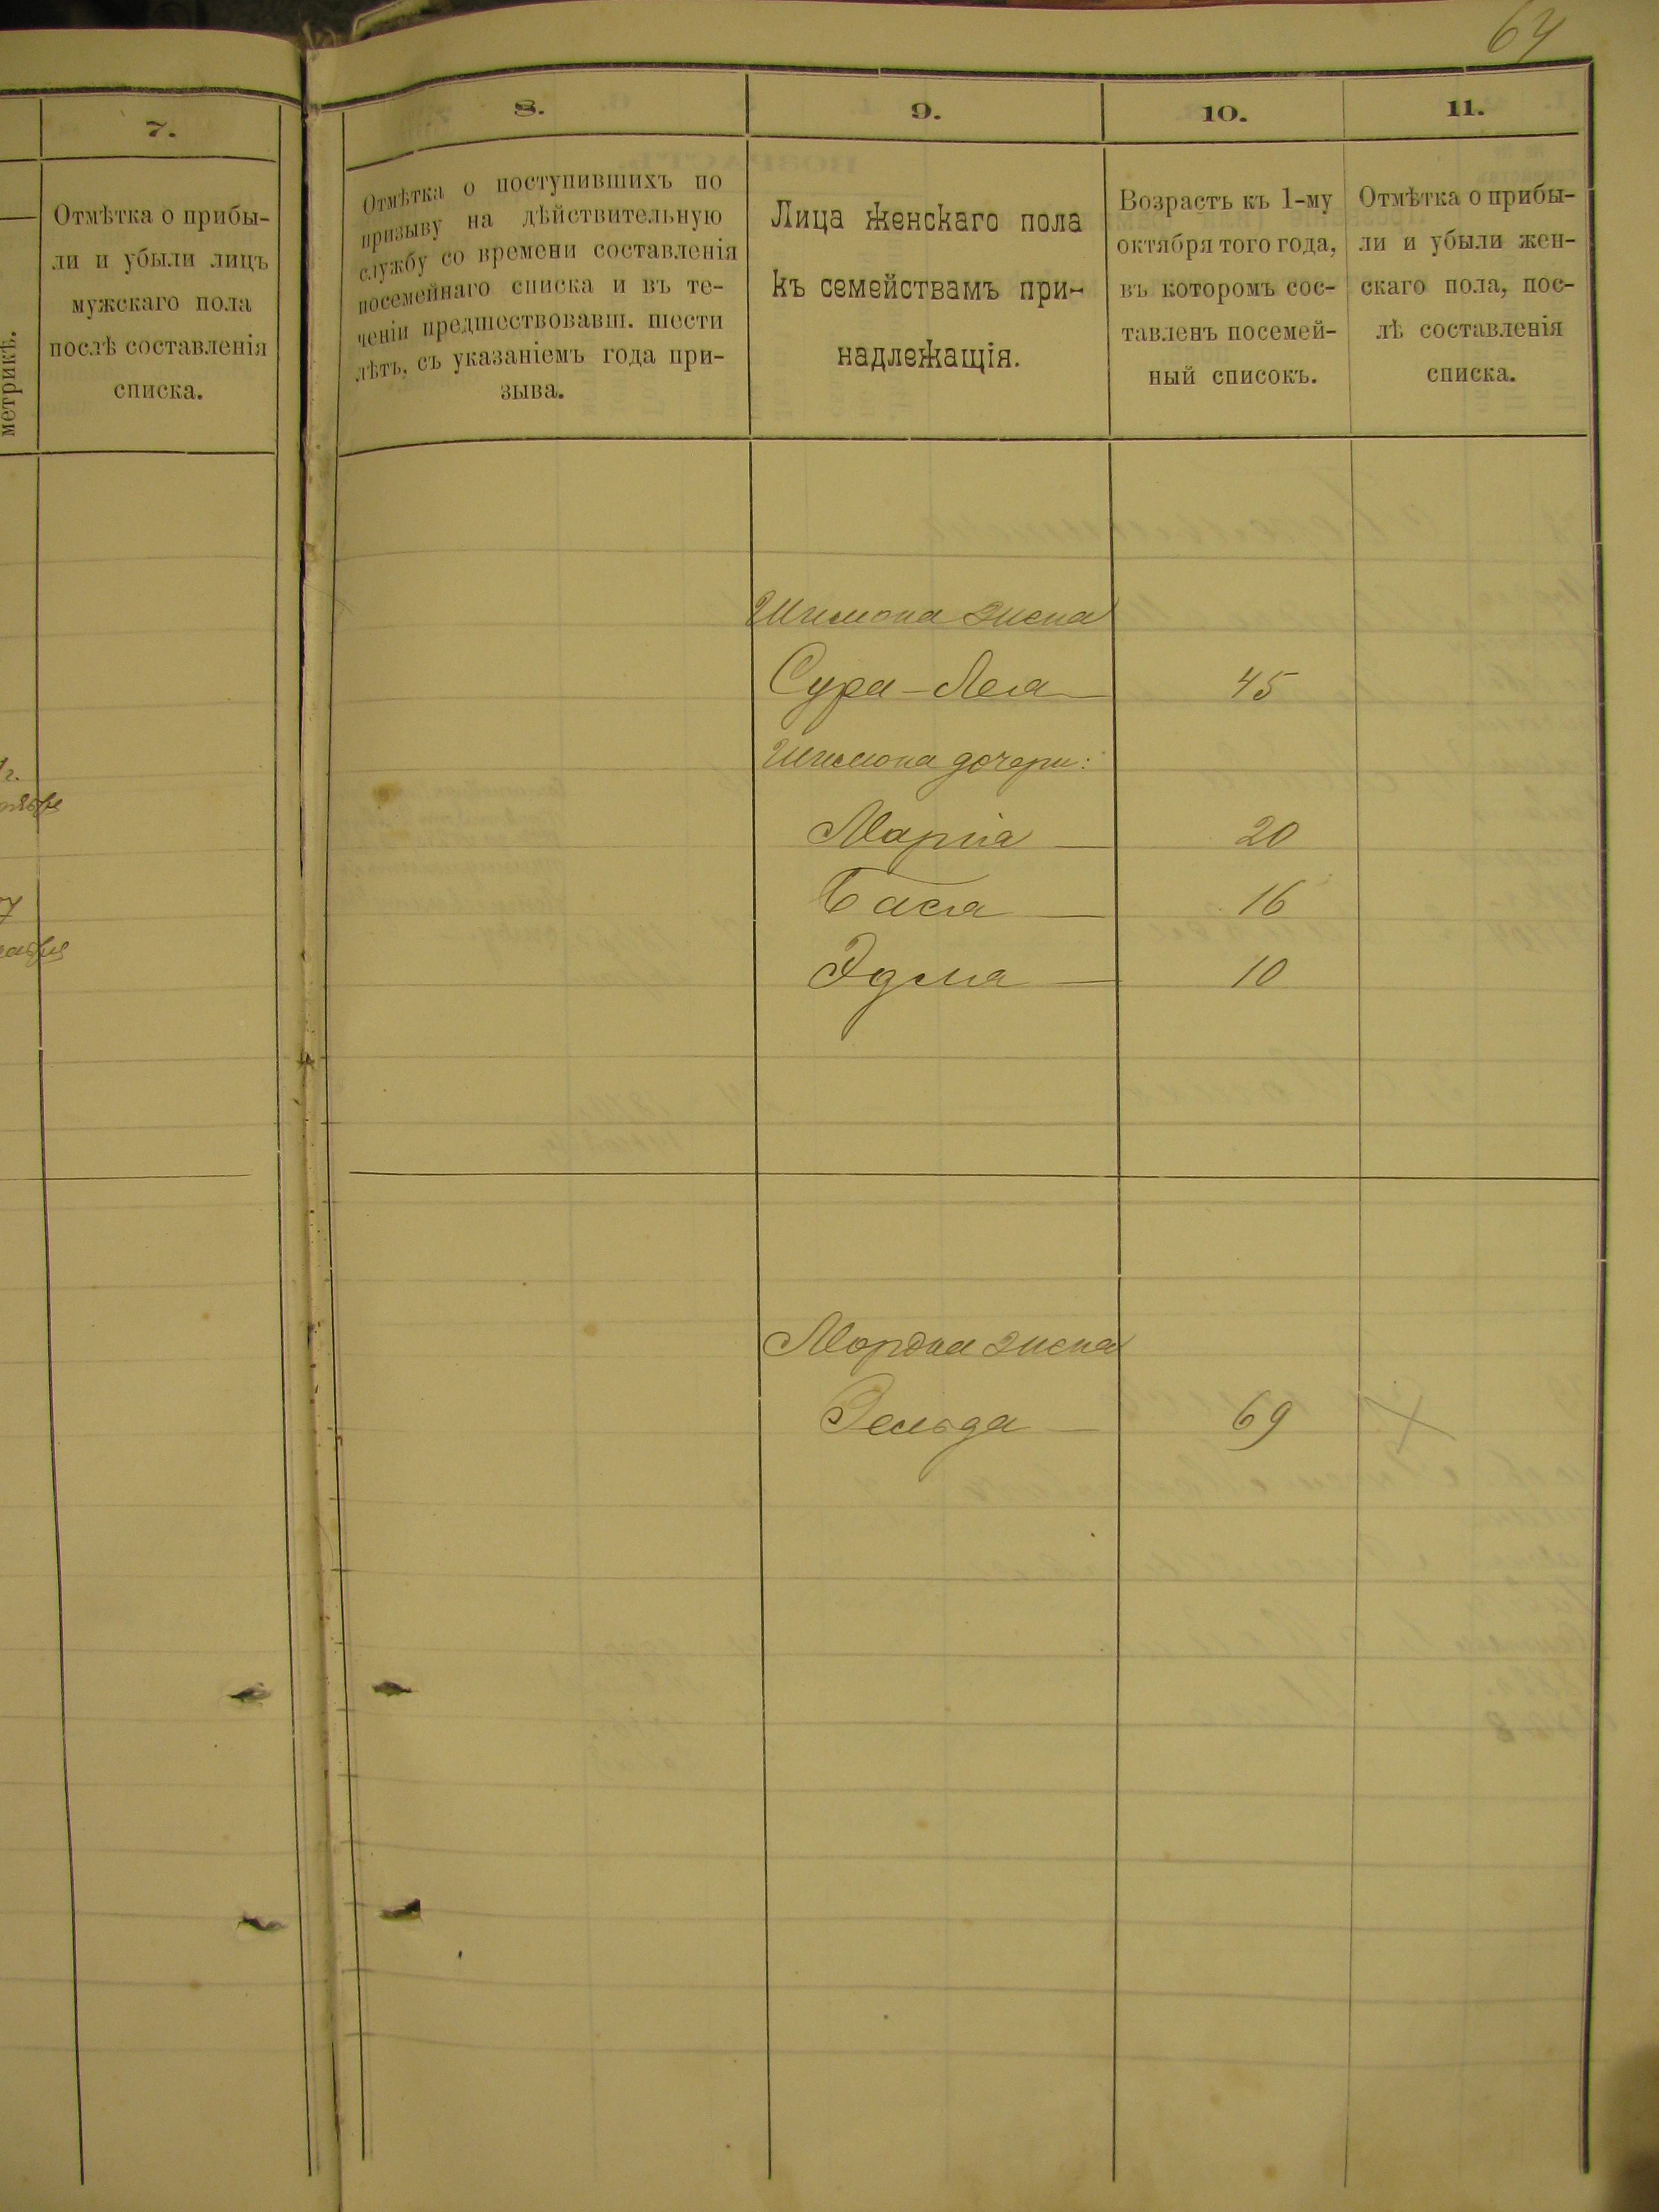 64
7.
Отмѣтка о прибы-
ли и убыли лицъ
мужскаго пола
послѣ составленія
списка.
метрикѣ.
8.
Отмѣтка о поступившихъ по
призыву на дѣйствительную
службу со времени составленія
посемейнаго списка и въ те-
ченіи предшествовавш. шести
лѣтъ, съ указаніемъ года при-
зыва.
9.
Лица женскаго пола
къ семействамъ при-
надлежащія.
10.
Возрастъ къ 1-му
октября того года,
въ которомъ сос-
тавленъ посемей-
ный списокъ.
11.
Отмѣтка о прибы-
ли и убыли жен-
скаго пола, пос-
лѣ составленія
списка.
Шимона жена
Сура-Лея 45
Шимона дочери:
Марія — 20
Бася — 16
Эдля — 10
Мордка жена
Зельда — 69